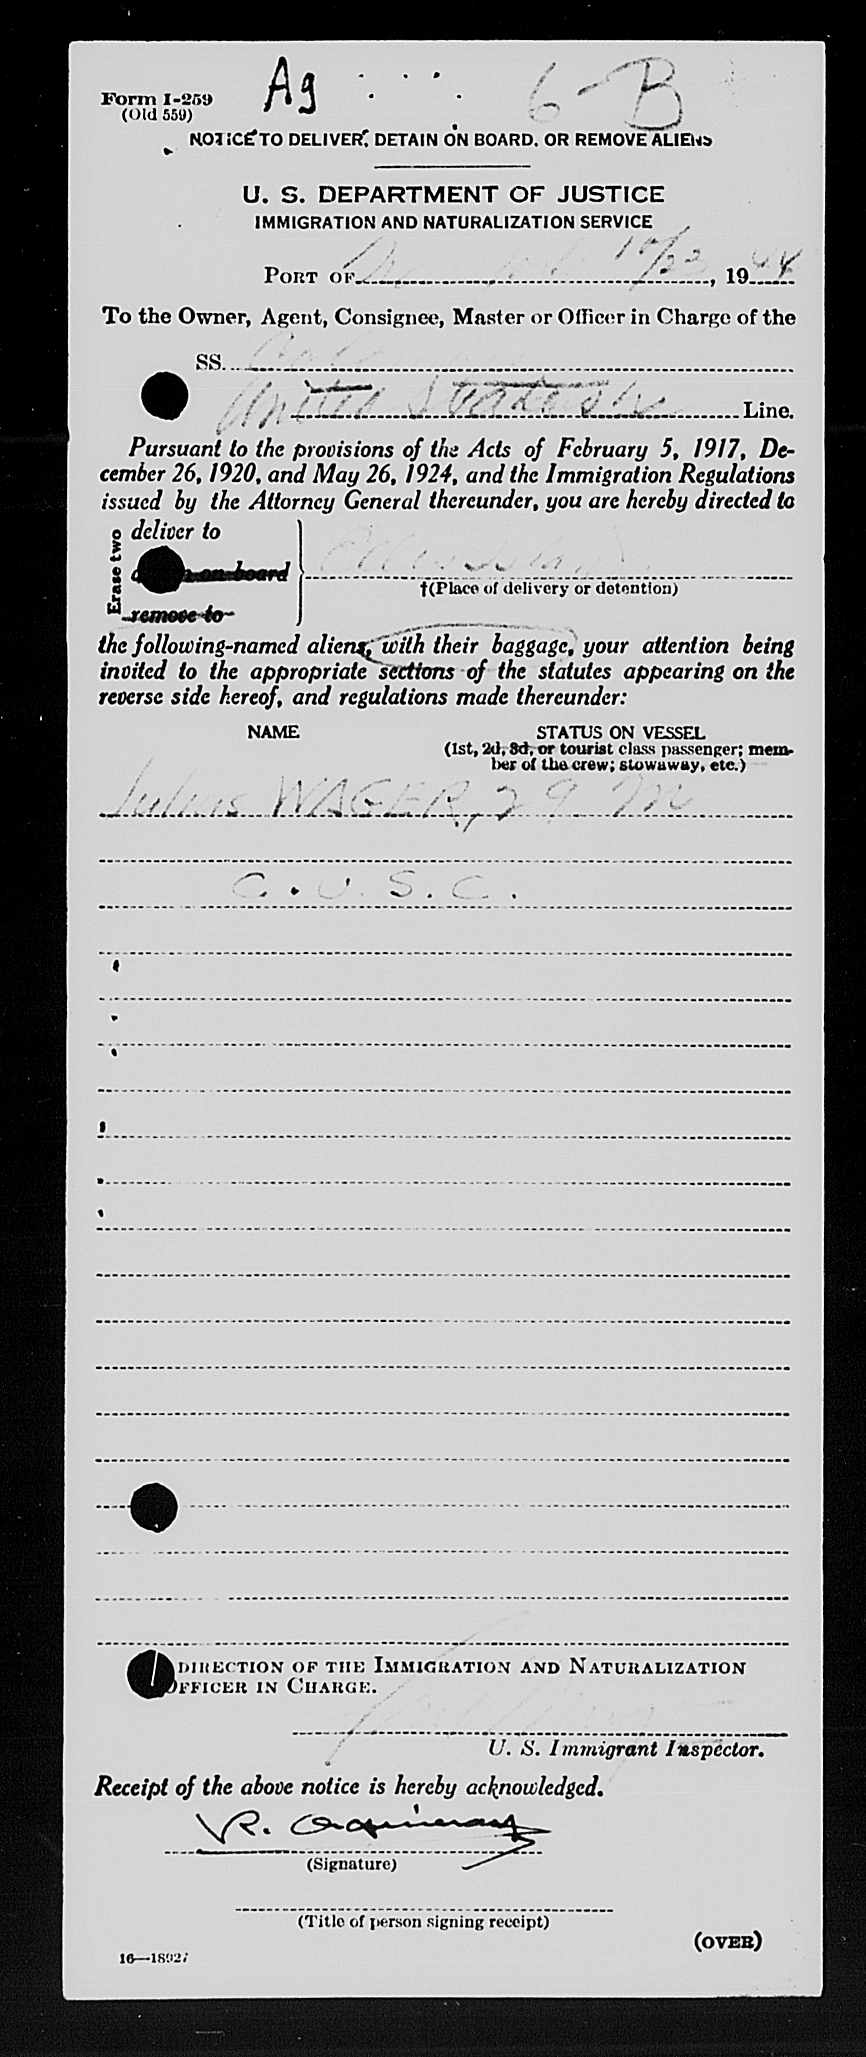 Form I-259
(Old 559)
Ag
6-B
NOTICE TO DELIVER, DETAIN ON BOARD, OR REMOVE ALIENS
U. S. DEPARTMENT OF JUSTICE
IMMIGRATION AND NATURALIZATION SERVICE
PORT OF , 19
To the Owner, Agent, Consignee, Master or Officer in Charge of the
SS.
United States Line.
Pursuant to the provisions of the Acts of February 5, 1917, De-
cember 26, 1920, and May 26, 1924, and the Immigration Regulations
issued by the Attorney General thereunder, you are hereby directed to
Erase two
deliver to
on board
Ellis Island
†(Place of delivery or detention)
remove to
the following-named aliens, with their baggage, your attention being
invited to the appropriate sections of the statutes appearing on the
reverse side hereof, and regulations made thereunder:
NAME STATUS ON VESSEL
(1st, 2d, 3d, or tourist class passenger; mem-
ber of the crew; stowaway, etc.)
Julius WAGER, 29 m
C. U. S. C.
DIRECTION OF THE IMMIGRATION AND NATURALIZATION
OFFICER IN CHARGE.
U. S. Immigrant Inspector.
Receipt of the above notice is hereby acknowledged.
R.
(Signature)
(Title of person signing receipt)
(OVER)
16—18927